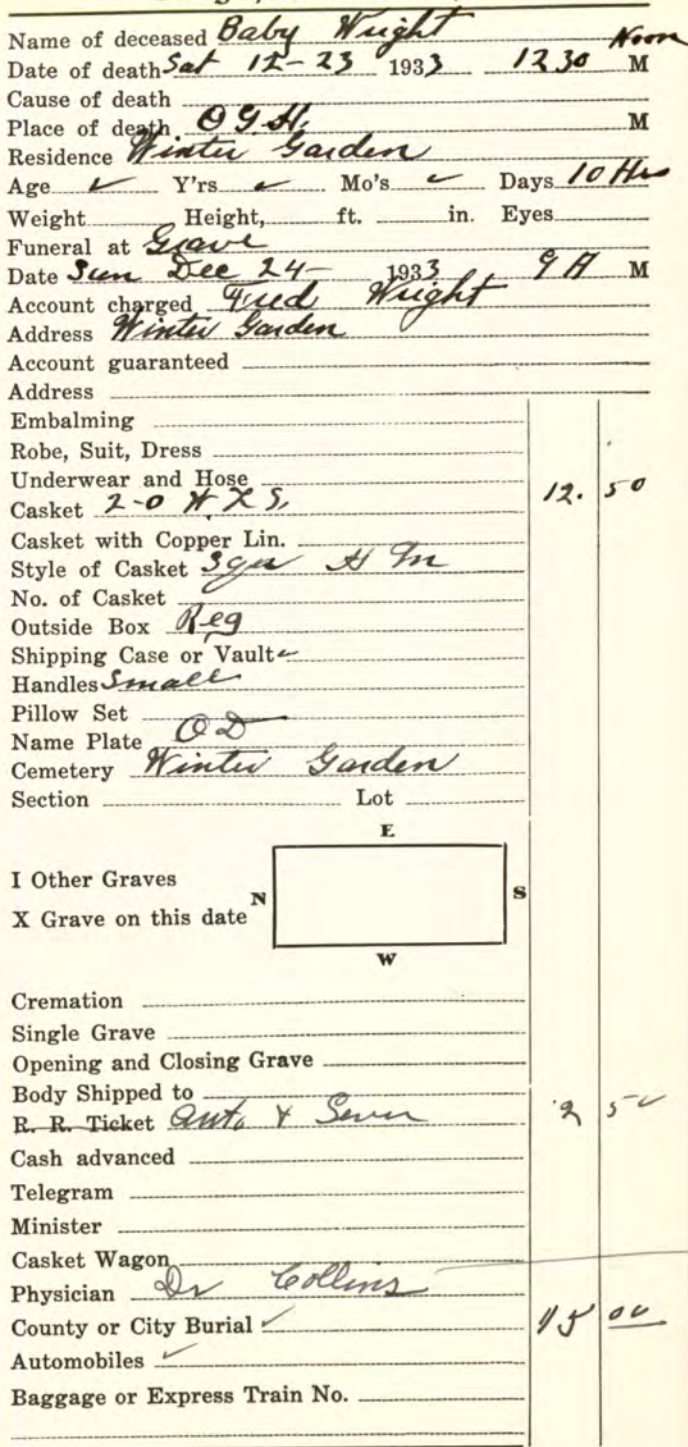 Name of deceased Baby Wright
Date of death Sat 12-23 1933 12 30 Noon M
Cause of death
Place of death O G.H. M
Residence Winter Garden
Age ✓ Y'rs ✓ Mo's ✓ Days 10 Hrs
Weight Height, ft. in. Eyes
Funeral at Grave
Date Sun Dec 24- 1933 9 A M
Account charged Fred Wright
Address Winter Garden
Account guaranteed
Address
Embalming
Robe, Suit, Dress
Underwear and Hose
Casket 2-0 12. 50
Casket with Copper Lin.
Style of Casket
No. of Casket
Outside Box Reg
Shipping Case or Vault ✓
Handles Small
Pillow Set
Name Plate O D
Cemetery Winter Garden
Section Lot
E
I Other Graves
N S
X Grave on this date
W
Cremation
Single Grave
Opening and Closing Grave
Body Shipped to
R. R. Ticket Auto & 2 50
Cash advanced
Telegram
Minister
Casket Wagon
Physician Dr Collins
County or City Burial ✓ 15 00
Automobiles ✓
Baggage or Express Train No.